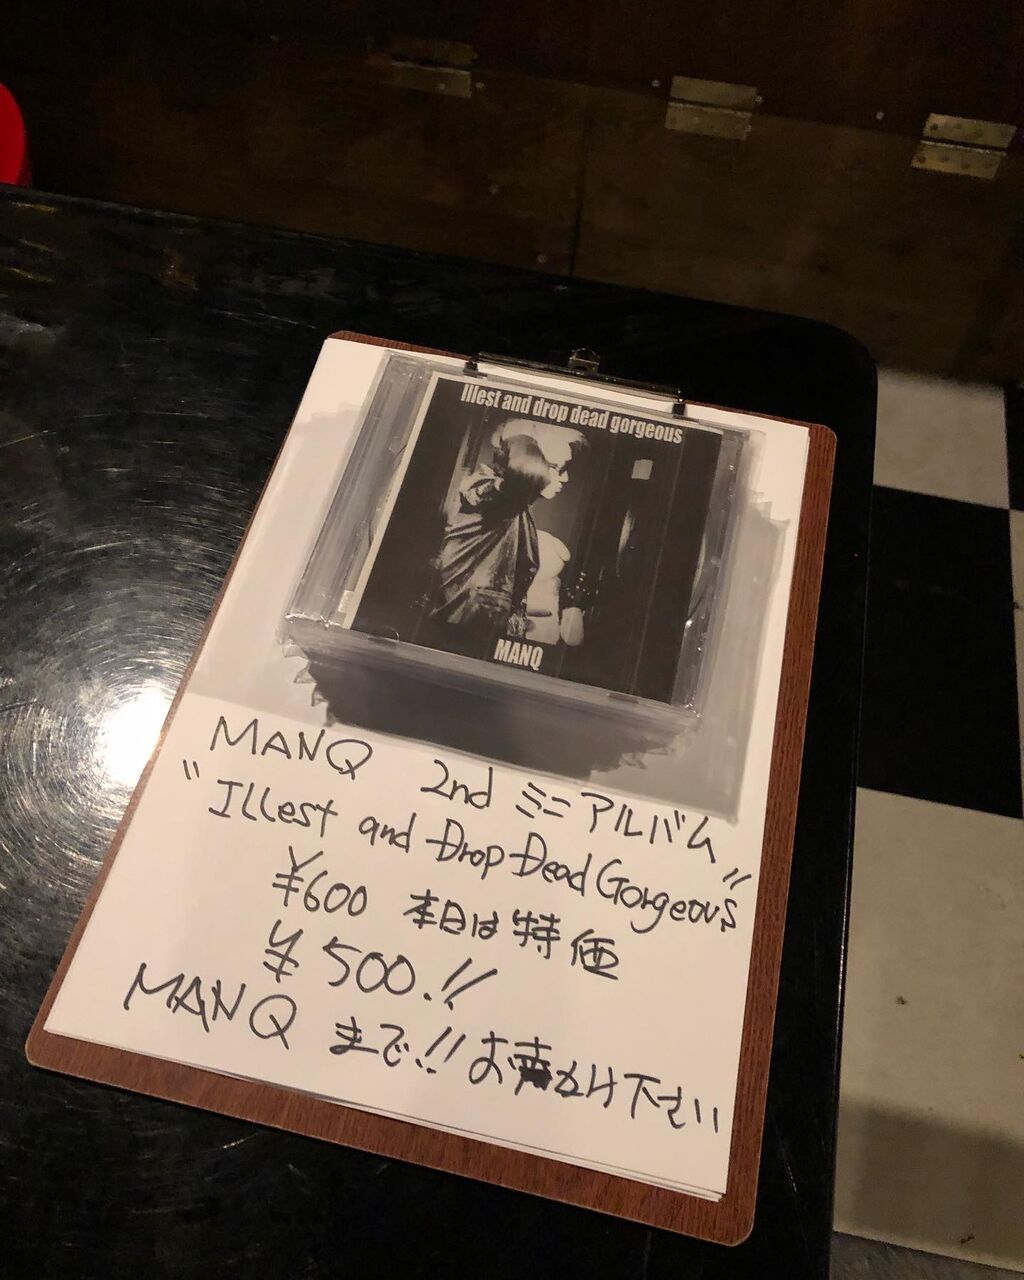 Illest and drop dead gorgeous
MANQ
MANQ 2nd ミニアルバム
"Illest and Drop Dead Gorgeous"
¥600 本日は特価
¥500.!!
MANQ まで!! お声かけ下さい